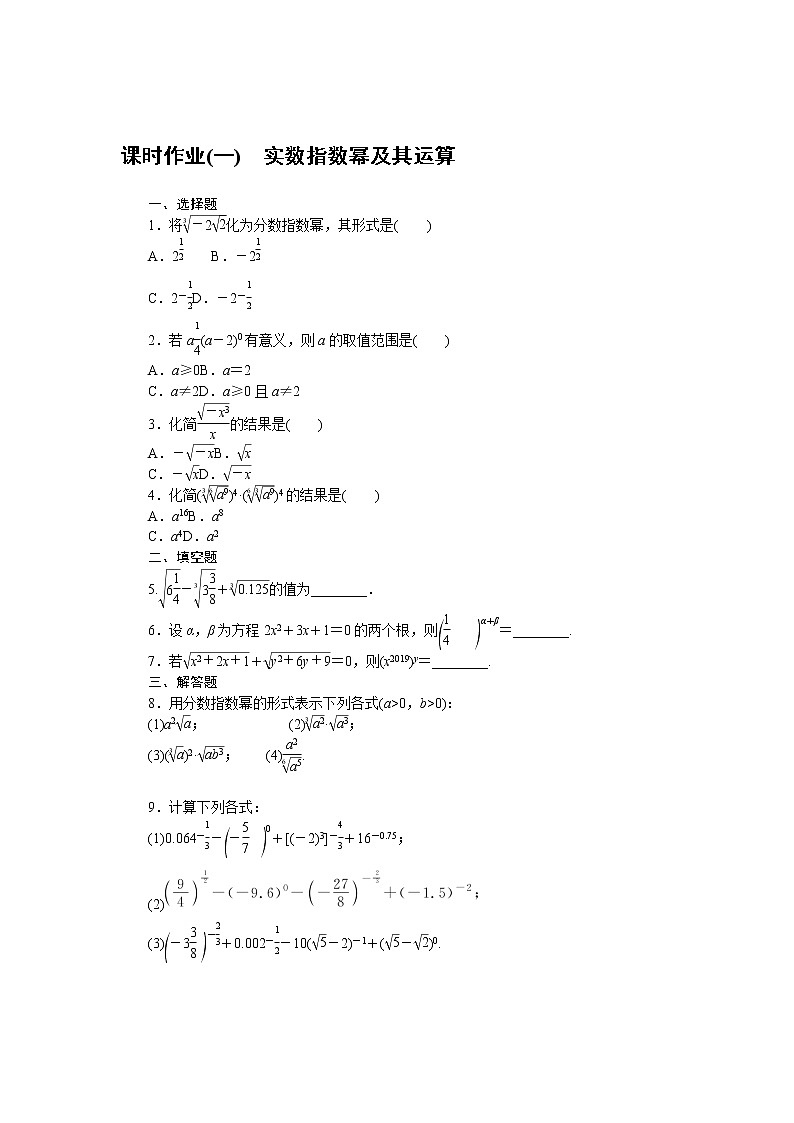 课时作业(一)　实数指数幂及其运算
一、选择题
1．将∛(－2√2)化为分数指数幂，其形式是(　　)
A．2^(1/2)　B．－2^(1/2)
C．2^(－1/2)D．－2^(－1/2)
2．若 a^(1/4)(a－2)^0有意义，则a的取值范围是(　　)
A．a≥0B．a＝2
C．a≠2D．a≥0且a≠2
3．化简√(－x³)/x的结果是(　　)
A．－√(－x)B．√x
C．－√xD．√(－x)
4．化简(∛(⁶√(a⁹)))⁴·(⁶√(∛(a⁹)))⁴的结果是(　　)
A．a¹⁶B．a⁸
C．a⁴D．a²
二、填空题
5.√(6 1/4)－∛(3 3/8)＋∛(0.125)的值为________．
6．设α，β为方程2x²＋3x＋1＝0的两个根，则(1/4)^(α＋β)＝________.
7．若√(x²＋2x＋1)＋√(y²＋6y＋9)＝0，则(x^2019)^y＝________.
三、解答题
8．用分数指数幂的形式表示下列各式(a>0，b>0)：
(1)a²√a；　(2)∛(a²)·√(a³)；
(3)(∛a)²·√(ab³)；　(4)a²/⁶√(a⁵).
9．计算下列各式：
(1)0.064^(－1/3)－(－5/7)^0＋[(－2)³]^(－4/3)＋16^(－0.75)；
(2)(9/4)^(1/2)－(－9.6)^0－(－27/8)^(－2/3)＋(－1.5)^(－2)；
(3)(－3 3/8)^(－2/3)＋0.002^(－1/2)－10(√5－2)^(－1)＋(√5－√2)^0.